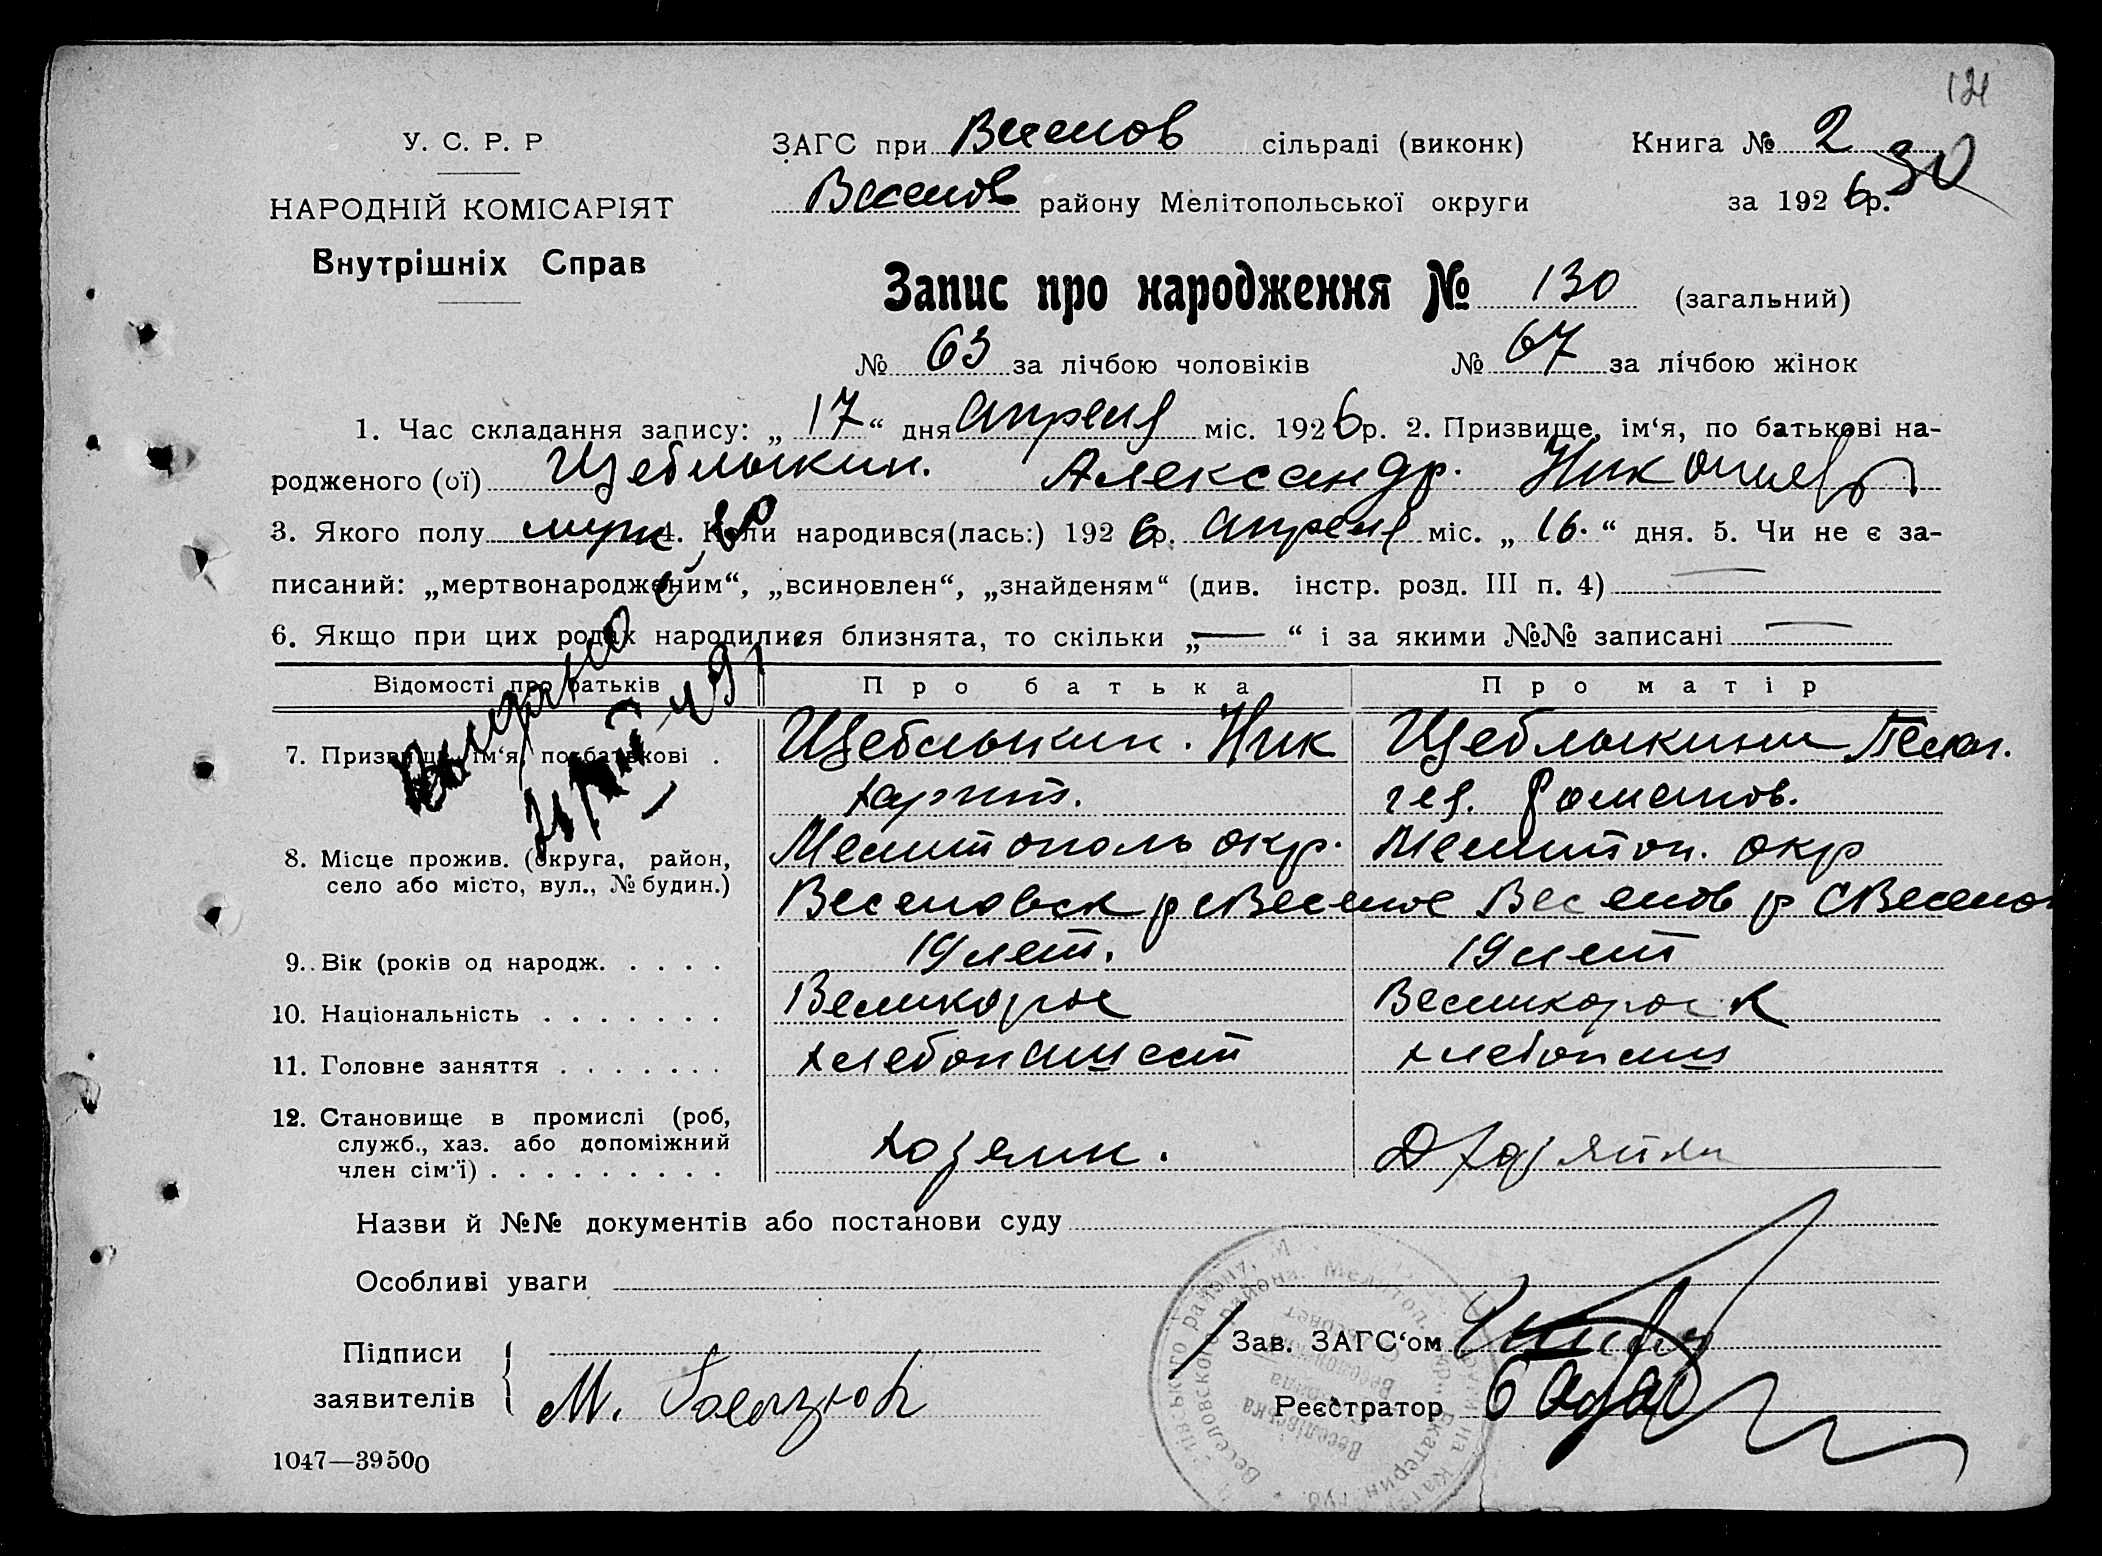 121
У. С. Р. Р
НАРОДНІЙ КОМІСАРІЯТ
Внутрішніх Справ
ЗАГС при Веселов сільраді (виконк)
Веселов району Мелітопольської округи
Книга № 2
30
за 1926р.
Запис про народження № 130 (загальний)
№ 63 за лічбою чоловіків № 67 за лічбою жінок
1. Час складання запису: „17“ дня апреля міс. 1926р. 2. Призвище, ім‘я, по батькові на-
родженого (ої) Щеблыкин. Александр. Николаев
3. Якого полу муж 4. Коли народився(лась:) 1926р. апреля міс. „16.“ дня. 5. Чи не є за-
писаний: „мертвонародженим“, „всиновлен“, „знайденям“ (див. інстр. розд. III п. 4)
6. Якщо при цих родах народилися близнята, то скільки „—“ і за якими №№ записані —
Відомості про батьків Про батька Про матір
7. Призвище, ім‘я, по батькові . Щеблыкин. Ник Щеблыкина Пелаг.
Харит. гея. Романов.
8. Місце прожив. (округа, район, Мелитополь окр. Мелитоп. окр
село або місто, вул., № будин.) Веселовск р с Веселое Веселов р С Веселое
9. Вік (років од народж. . . . . 19 лет. 19 лет
10. Національність . . . . . . . Великорос Великорос к
11. Головне заняття . . . . . . . хлебопашест хлебопаш
12. Становище в промислі (роб,
служб., хаз. або допоміжний
член сім‘ї) . . . . . . . . . хозяин. Д хозяйки
Назви й №№ документів або постанови суду
Особливі уваги
Підписи
заявителів М.
Зав. ЗАГС‘ом
Реєстратор
1047—39500